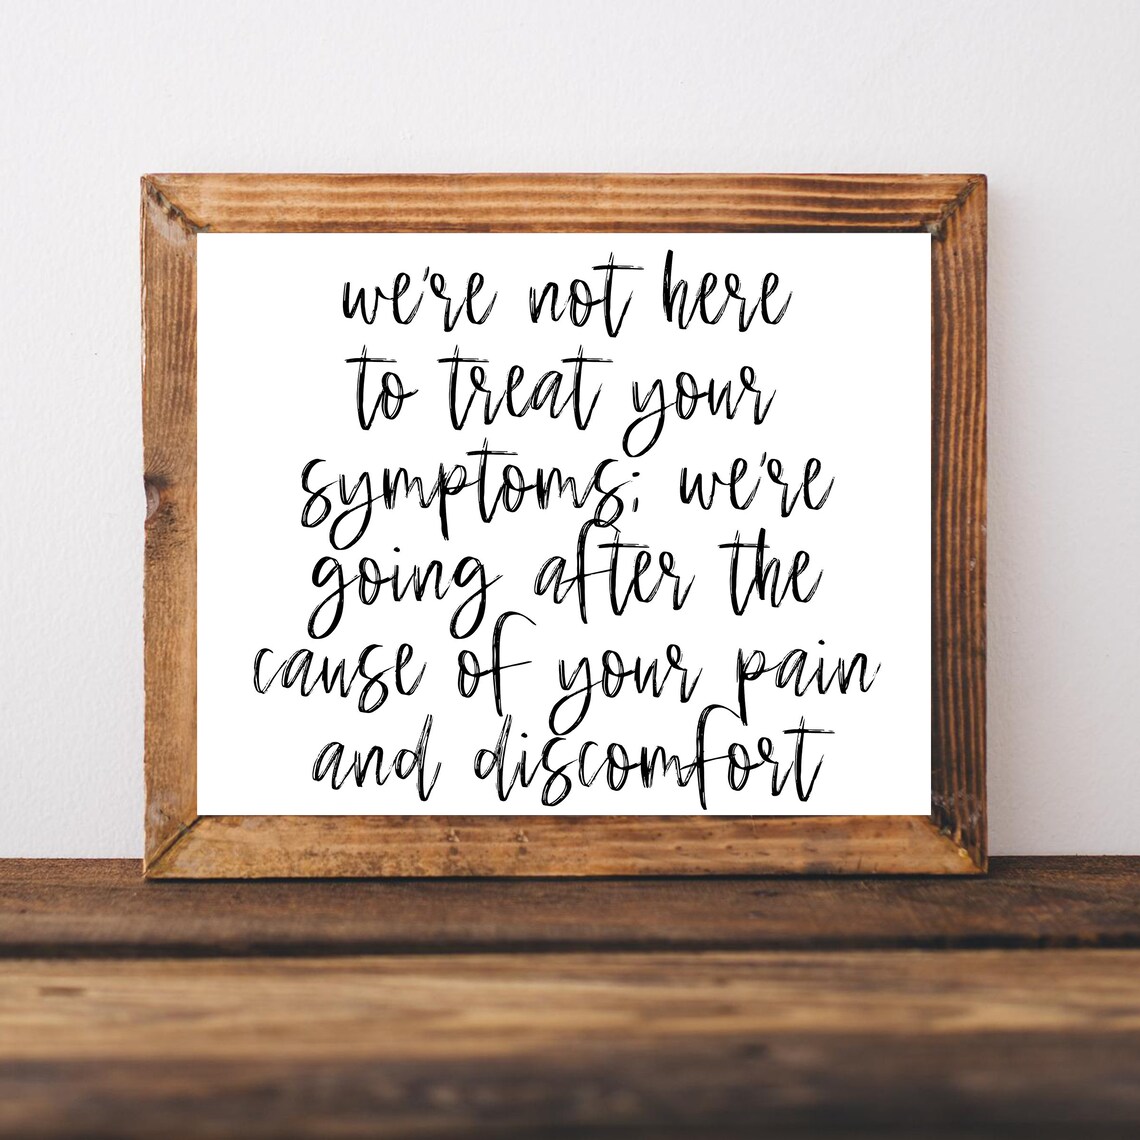 we're not here
to treat your
symptoms; we're
going after the
cause of your pain
and discomfort